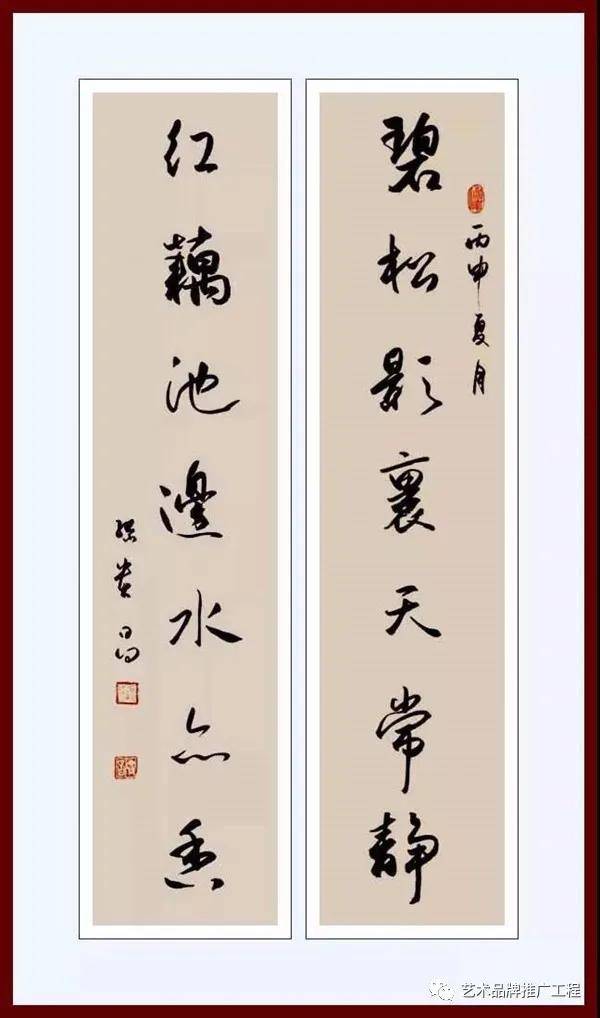 碧松影裏天常静
丙申夏月
红藕池邊水亦香
艺术品牌推广工程